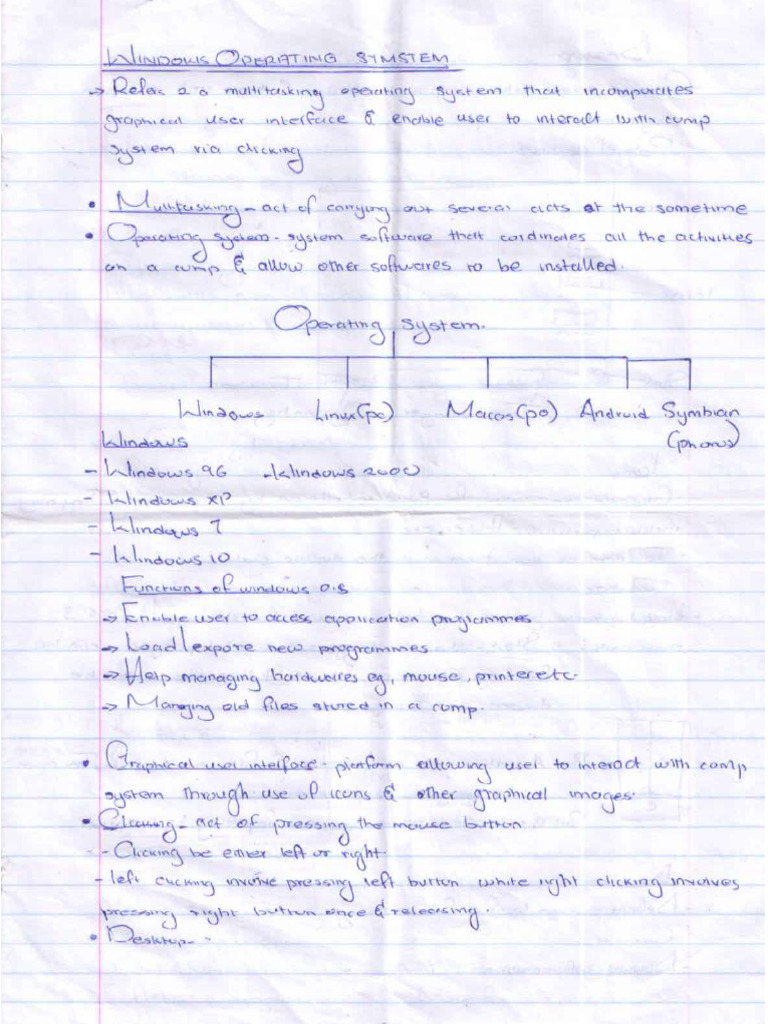 WINDOWS OPERATING SYMSTEM
→ Refers 2 a multitasking operating system that incomparates
graphical user interface & enable user to interact with comp
system via clicking
• Multitasking - act of carrying out several acts at the sometime
• Operating system - system software that cordinates all the activities
on a comp & allow other softwares to be installed.
Operating system.
Windows Linux(pc) Macos(pc) Android Symbian
(phones)
Windows
- Windows 96 - Windows 2000
- Windows XP
- Windows 7
- Windows 10
Functions of windows o.s
→ Enable user to access application programmes
→ Load/expore new programmes
→ Help managing hardwares eg, mouse, printer etc.
→ Manging old files stored in a comp.
• Graphical user interface - platform allowing user to interact with comp
system through use of icons & other graphical images.
• Clicking - act of pressing the mouse button
- Clicking be either left or right.
- left clicking involve pressing left button while right clicking involves
pressing right button once & releasing.
• Desktop -